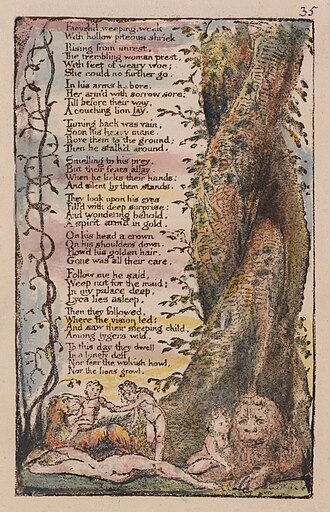 35
Famish'd, weeping, weak
With hollow piteous shriek
Rising from unrest,
The trembling woman prest,
With feet of weary woe;
She could no further go.
In his arms he bore,
Her arm'd with sorrow sore;
Till before their way,
A couching lion lay.
Turning back was vain,
Soon his heavy mane,
Bore them to the ground;
Then he stalk'd around,
Smelling to his prey.
But their fears allay,
When he licks their hands;
And silent by them stands.
They look upon his eyes
Fill'd with deep surprise:
And wondering behold,
A spirit arm'd in gold.
On his head a crown
On his shoulders down,
Flow'd his golden hair.
Gone was all their care.
Follow me he said,
Weep not for the maid;
In my palace deep,
Lyca lies asleep.
Then they followed,
Where the vision led:
And saw their sleeping child,
Among tygers wild.
To this day they dwell
In a lonely dell
Nor fear the wolvish howl,
Nor the lions growl.